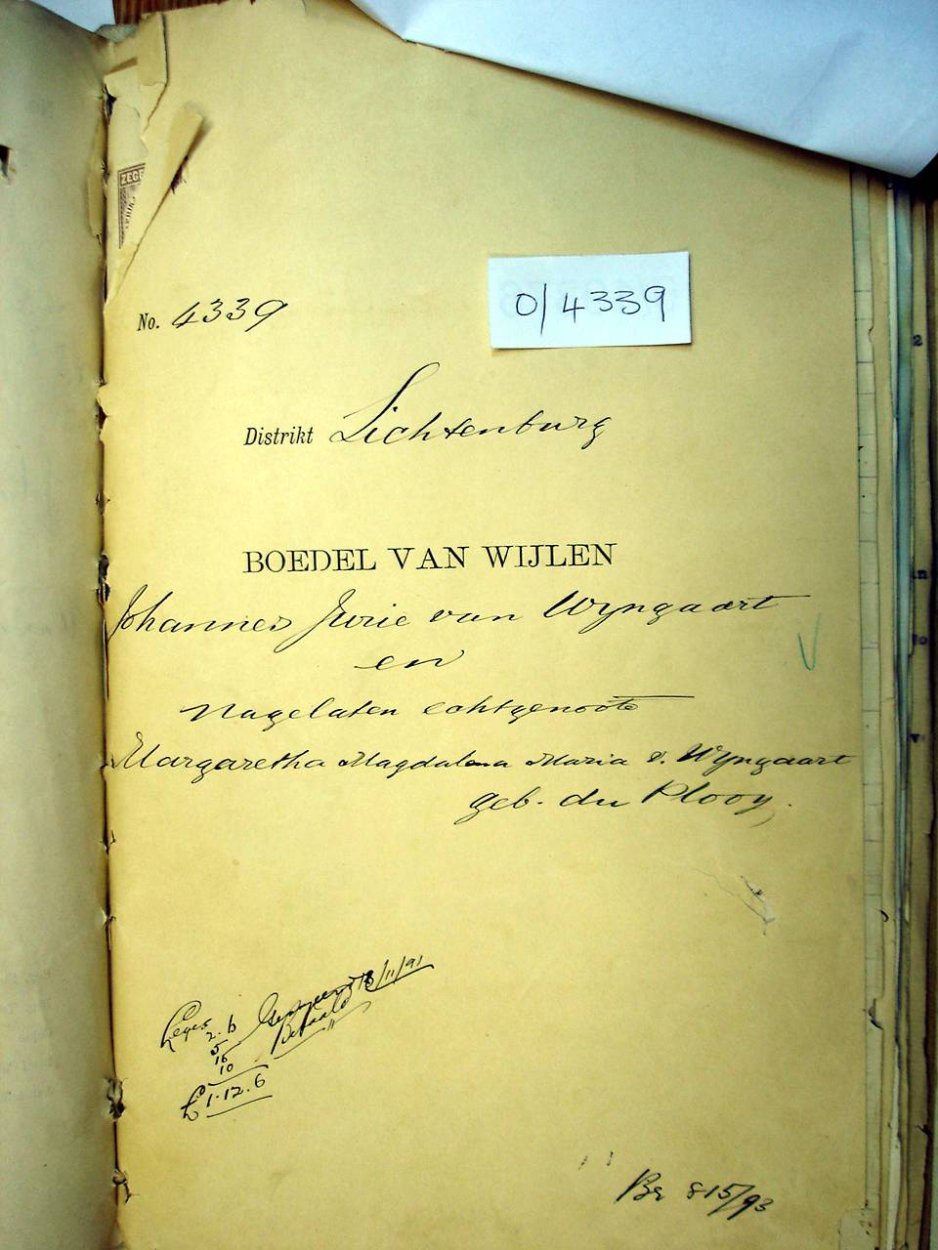 ZEGE
No. 4339
0/4339
Distrikt Lichtenburg
BOEDEL VAN WIJLEN
Johannes Jurie van Wyngaart
en
Nagelaten echtgenoote
Margaretha Magdalena Maria v. Wyngaart
geb. du Plooy.
Leges 2.6
18/11/91
5
Betaald
10
£1.12.6
815/93